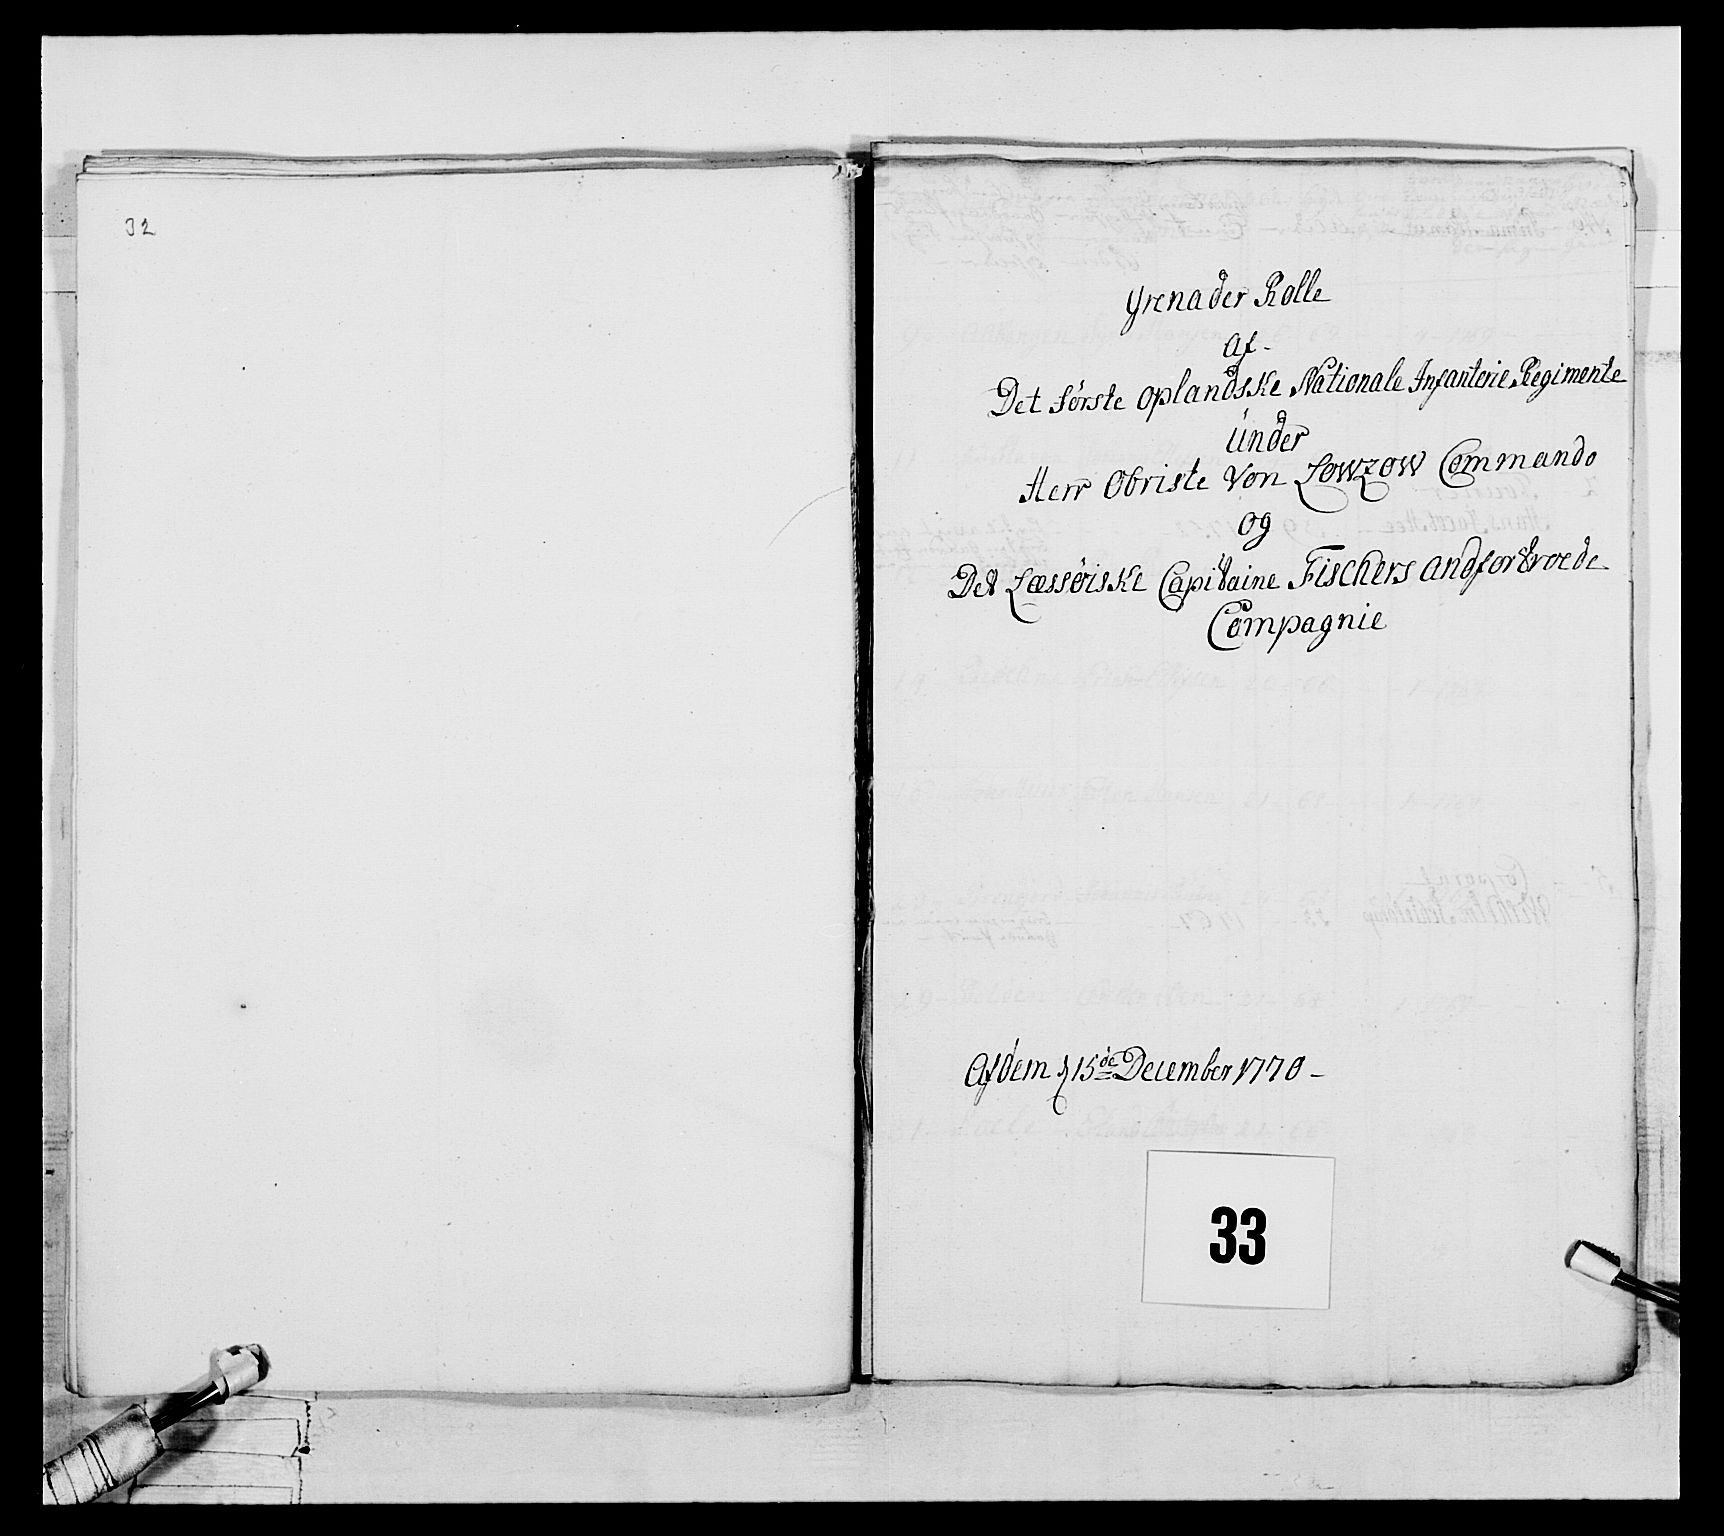 32
Grenader Rolle
af-
Det første oplandske Nationale Infanterie Regimente
Under
Herr Obriste Von Lowzow Commando
og
Det Læssøiske Capitaine Fischers andfortroede
Compagnie
Afdem 15de December 1770-
33